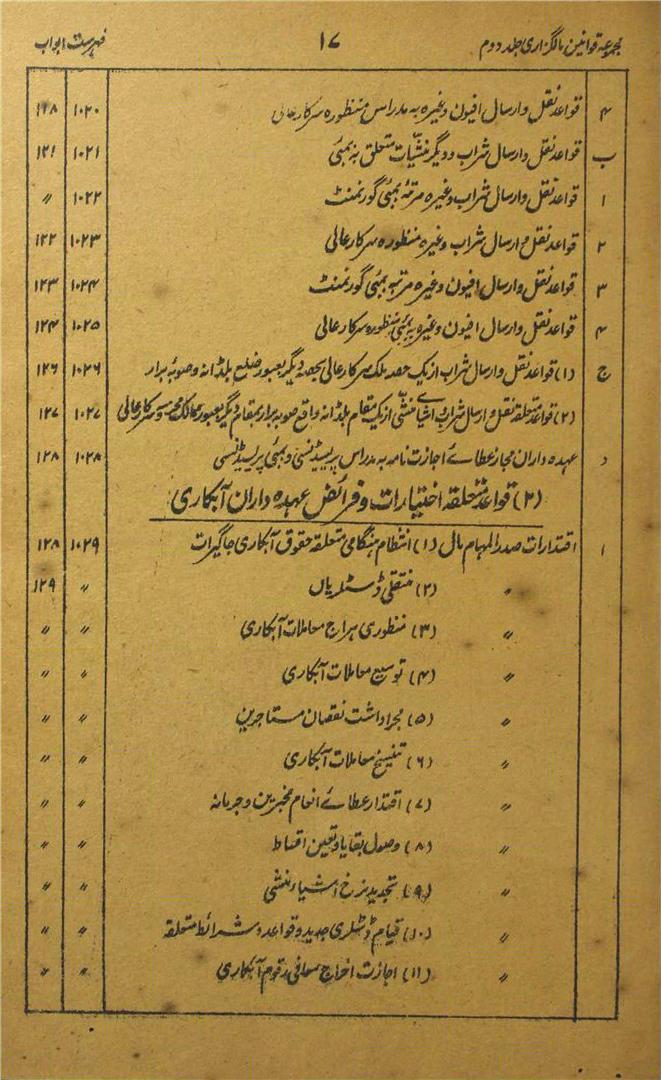 مجموعہ قوانین مالگزاری جلد دوم ۱۷ فہرست ابواب
۴ قواعد نقل و ارسال افیون وغیرہ بہ مدراس منظورہ سرکار عالی ۱۰۲۰ ۱۱۸
ب قواعد نقل و ارسال شراب و دیگر منشیات متعلق بہ بمبئی ۱۰۲۱ ۱۲۱
۱ قواعد نقل و ارسال شراب وغیرہ مرتبہ بمبئی گورنمنٹ ۱۰۲۲ 〃
۲ قواعد نقل و ارسال شراب وغیرہ منظورہ سرکار عالی ۱۰۲۳ ۱۲۲
۳ قواعد نقل و ارسال افیون وغیرہ مرتبہ بمبئی گورنمنٹ ۱۰۲۴ ۱۲۳
۴ قواعد نقل و ارسال افیون وغیرہ بہ بمبئی منظورہ سرکار عالی ۱۰۲۵ ۱۲۴
ج (۱) قواعد نقل و ارسال شراب از یک حصہ ملک سرکار عالی بحصہ دیگر بعبور ضلع بلڈانہ و صوبہ برار ۱۰۲۶ ۱۲۶
(۲) قواعد متعلقہ نقل و ارسال شراب و اشیائے منشی از یک مقام بلڈانہ واقع صوبہ برار بمقام دیگر بعبور ممالک محروسہ سرکار عالی ۱۰۲۷ ۱۲۷
د عہدہ داران مجاز عطائے اجازت نامہ بہ مدراس پریسیڈنسی و بمبئی پریسیڈنسی ۱۰۲۸ ۱۲۸
(۲) قواعد متعلقہ اختیارات و فرائض عہدہ داران آبکاری
۱ اقتدارات صدر المہام مال (۱) انتظام ہنگامی متعلقہ حقوق آبکاری جاگیرات ۱۰۲۹ ۱۲۸
〃 (۲) منتقلی ڈسٹلریاں 〃 ۱۲۹
〃 (۳) منظوری ہراج معاملات آبکاری 〃 〃
〃 (۴) توسیع معاملات آبکاری 〃 〃
〃 (۵) مجرا داشت نقصان مستاجرین 〃 〃
〃 (۶) تنسیخ معاملات آبکاری 〃 〃
〃 (۷) اقتدار عطائے انعام مخبرین و جرمانہ 〃 〃
〃 (۸) وصول بقایا و تعین اقساط 〃 〃
〃 (۹) تجدید نرخ اشیاء منشی 〃 〃
〃 (۱۰) قیام ڈسٹلری جدید و قواعد و شرائط متعلقہ 〃 〃
〃 (۱۱) اجازت اخراج معافی رقوم آبکاری 〃 〃